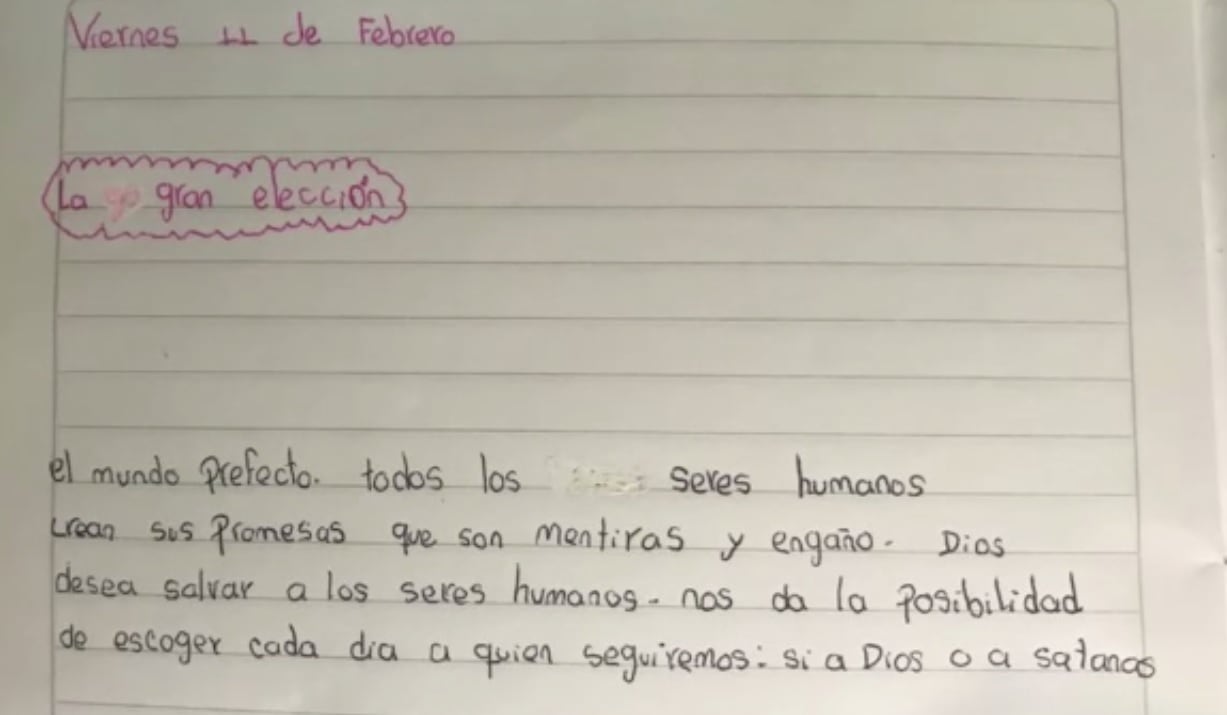 Viernes 11 de Febrero
La gran elección
el mundo Prefecto. todos los seres humanos
crean sus Promesas que son mentiras y engaño. Dios
desea salvar a los seres humanos. nos da la Posibilidad
de escoger cada dia a quien seguiremos: si a Dios o a satanas